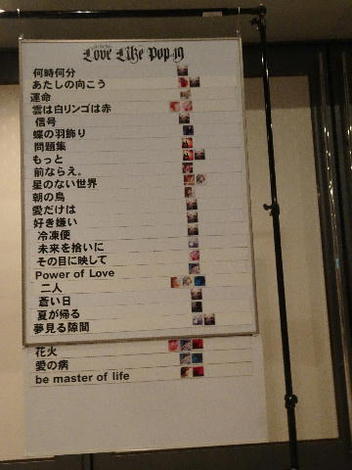 Love Like Pop 19
何時何分
あたしの向こう
運命
雲は白リンゴは赤
信号
蝶の羽飾り
問題集
もっと
前ならえ。
星のない世界
朝の鳥
愛だけは
好き嫌い
冷凍便
未来を拾いに
その目に映して
Power of Love
二人
蒼い日
夏が帰る
夢見る隙間
花火
愛の病
be master of life